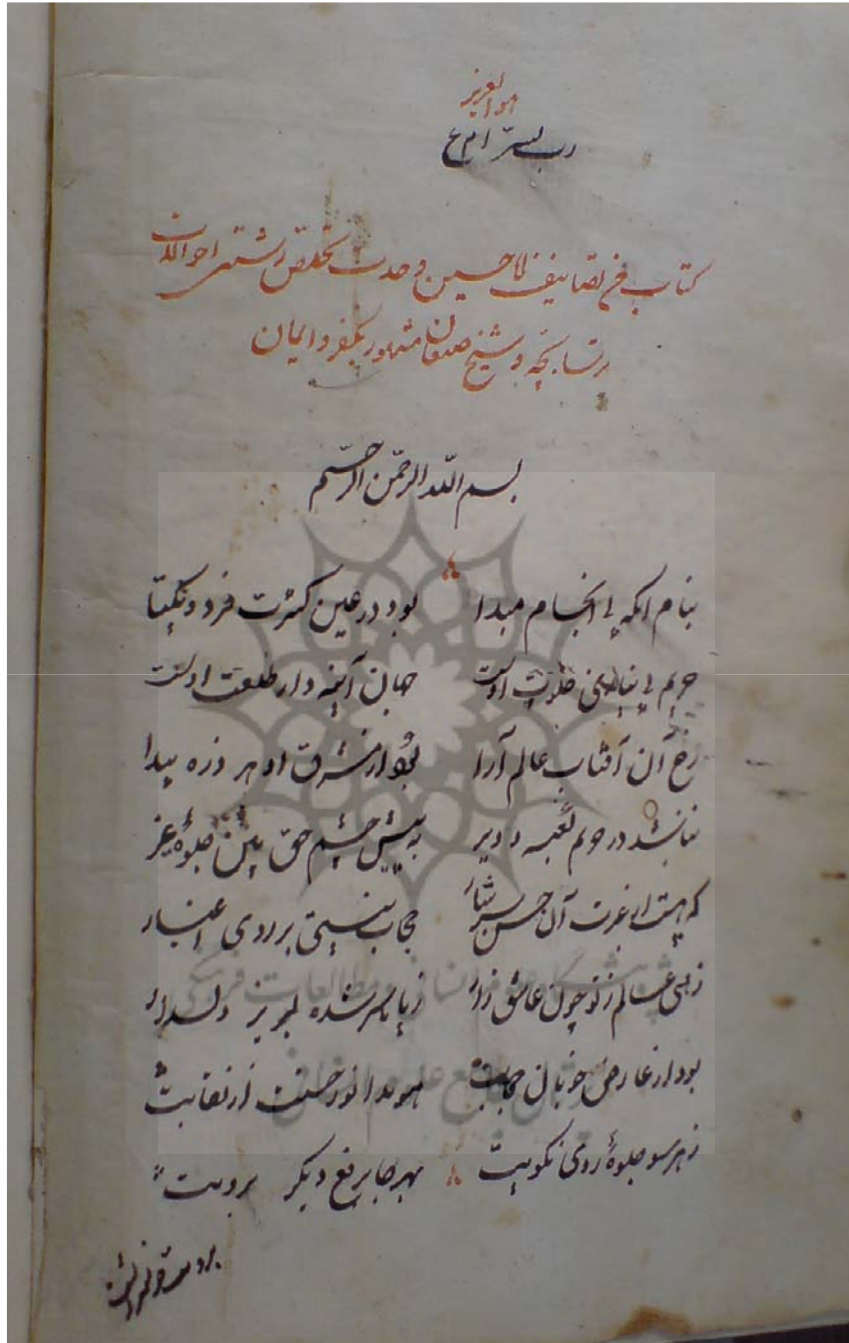 هوالعزیز
رب یسر
کتاب من تصانیف ملا حسین وحدت تخلص رشتی احوالات
ترسا بچه و شیخ صنعان مشهور بکفر و ایمان
بسم الله الرحمن الرحیم
بنام انکه بی انجام مبدا بود در عین کثرت فرد و یکتا
حریم بی نیازی خلوت اوست جهان آینه دار طلعت اوست
رخ آن آفتاب عالم آرا بود از مشرق هر ذره پیدا
نباشد در حرم کعبه و دیر به پیش چشم حق بین جلوهٔ غیر
که هست از غیرت آن حسن سرشار حجاب نیستی بر روی اغیار
زهی عالم ز تو چون عاشق زار ز پا تا سر شده لبریز دلدار
بود از عارض خوبان حجابت هویدا نور حسنت از نقابت
ز هر سو جلوهٔ روی نکویت بهر جا برقع دیگر برویت
پژوهشگاه علوم انسانی و مطالعات فرهنگی
پرتال جامع علوم انسانی